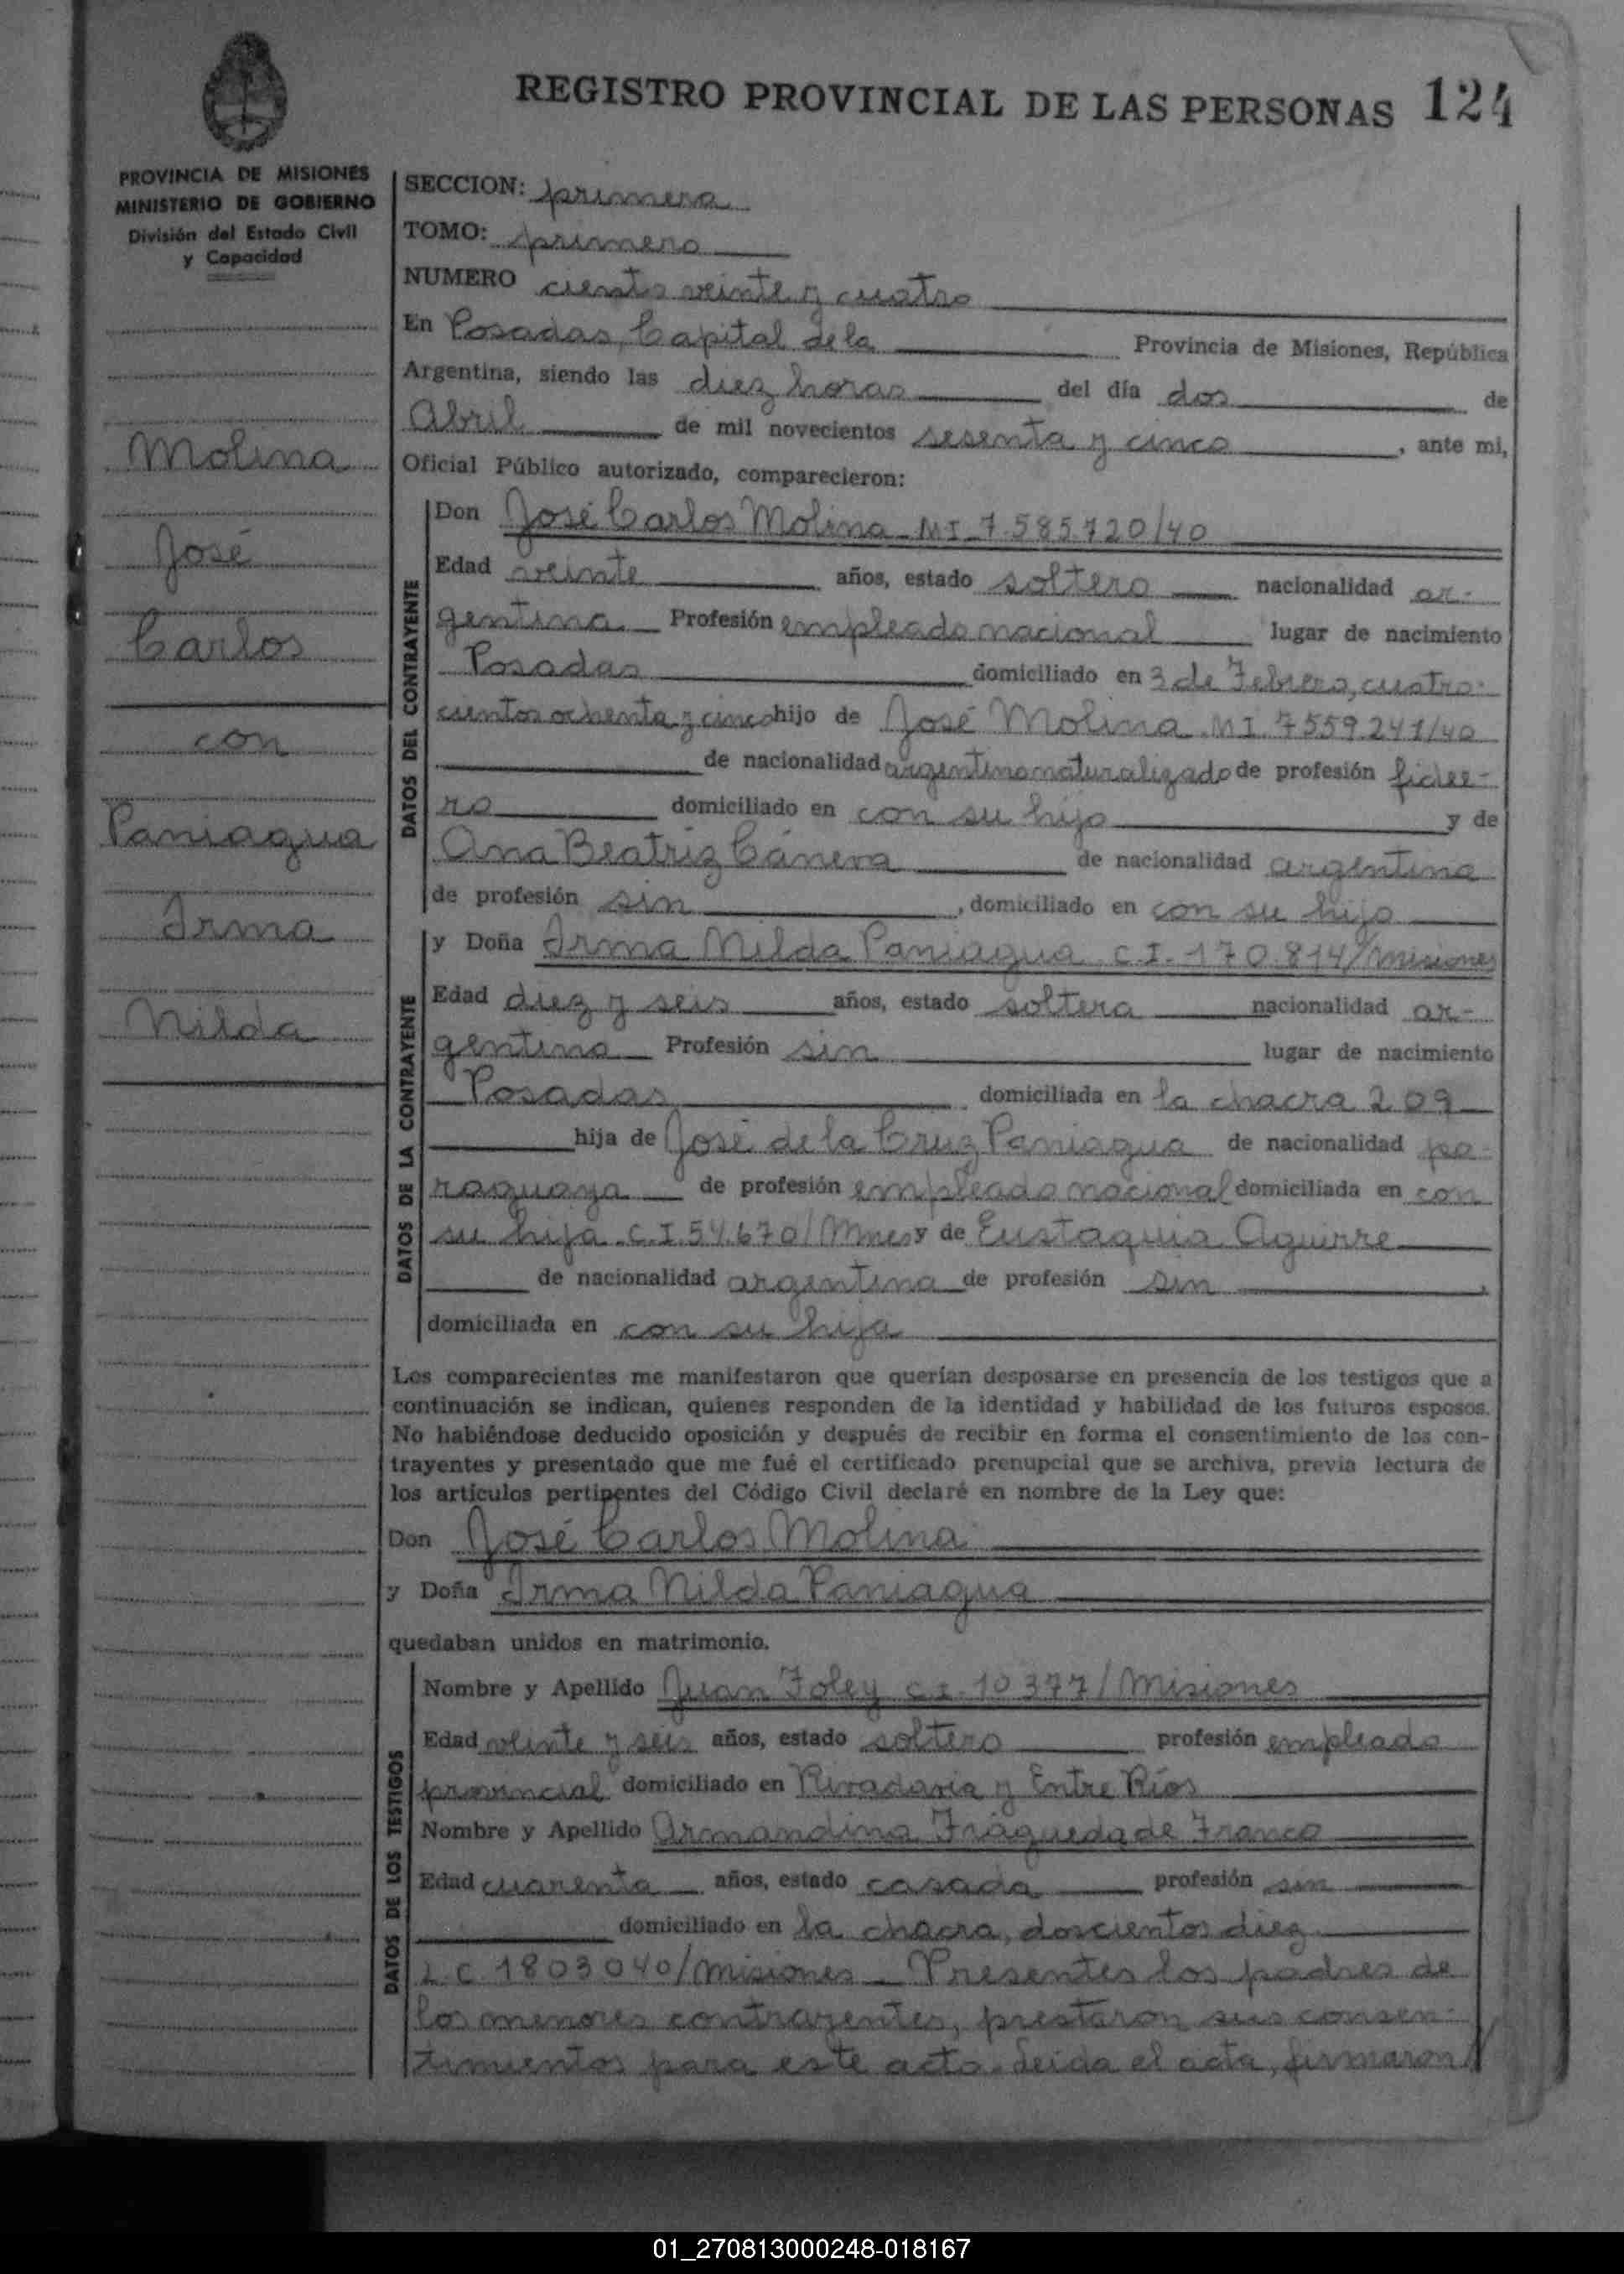 REGISTRO PROVINCIAL DE LAS PERSONAS 124
PROVINCIA DE MISIONES
MINISTERIO DE GOBIERNO
División del Estado Civil
y Capacidad
Molina
José
Carlos
con
Paniagua
Irma
Nilda
SECCION: primera
TOMO: primero
NUMERO ciento veinte y cuatro
En Posadas, Capital de la Provincia de Misiones, República
Argentina, siendo las diez horas del día dos de
Abril de mil novecientos sesenta y cinco, ante mi,
Oficial Público autorizado, comparecieron:
DATOS DEL CONTRAYENTE
Don José Carlos Molina - MI - 7.585.720/40
Edad veinte años, estado soltero nacionalidad ar-
gentina Profesión empleado nacional lugar de nacimiento
Posadas domiciliado en 3 de Febrero, cuatro-
cientos ochenta y cinco hijo de José Molina. MI. 7559.241/40
de nacionalidad argentino naturalizado de profesión fidee-
ro domiciliado en con su hijo y de
Ana Beatriz Cánera de nacionalidad argentina
de profesión sin, domiciliado en con su hijo
DATOS DE LA CONTRAYENTE
y Doña Irma Nilda Paniagua C.I. 170.814/Misiones
Edad diez y seis años, estado soltera nacionalidad ar-
gentina Profesión sin lugar de nacimiento
Posadas domiciliada en la chacra 209
hija de José de la Cruz Paniagua de nacionalidad pa-
raguaya de profesión empleado nacional domiciliada en con
su hija. C.I. 54.670/Mnes y de Eustaquia Aguirre
de nacionalidad argentina de profesión sin,
domiciliada en con su hija
Los comparecientes me manifestaron que querían desposarse en presencia de los testigos que a
continuación se indican, quienes responden de la identidad y habilidad de los futuros esposos.
No habiéndose deducido oposición y después de recibir en forma el consentimiento de los con-
trayentes y presentado que me fué el certificado prenupcial que se archiva, previa lectura de
los artículos pertinentes del Código Civil declaré en nombre de la Ley que:
Don José Carlos Molina
y Doña Irma Nilda Paniagua
quedaban unidos en matrimonio.
DATOS DE LOS TESTIGOS
Nombre y Apellido Juan Foley C.I. 10377/Misiones
Edad veinte y seis años, estado soltero profesión empleado
provincial domiciliado en Rivadavia y Entre Ríos
Nombre y Apellido Armandina Fragueda de Franco
Edad cuarenta años, estado casada profesión sin
domiciliado en la chacra, doscientos diez
L.C. 1803040/Misiones - Presentes los padres de
los menores contrayentes, prestaron sus consen-
timientos para este acto. Leida el acta, firmaron
01_270813000248-018167